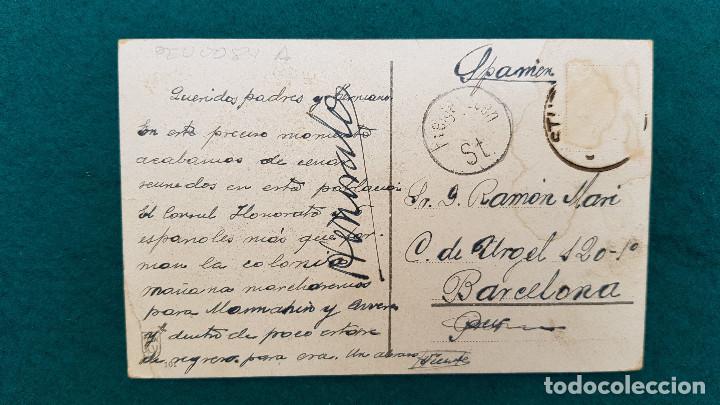 Spanien
Queridos padres y hermano
En este preciso momento
acabamos de cenar
reunidos en esta población
el Consul Honorato
españoles más que for
man la colonia
mañana marcharemos
para Mannheim y
y dentro de poco estare
de regreso para esa. Un abrazo
Vicente
St.
Sr. D. Ramón Mari
C. de Urgel 120-1º
Barcelona
101
todocoleccion.net